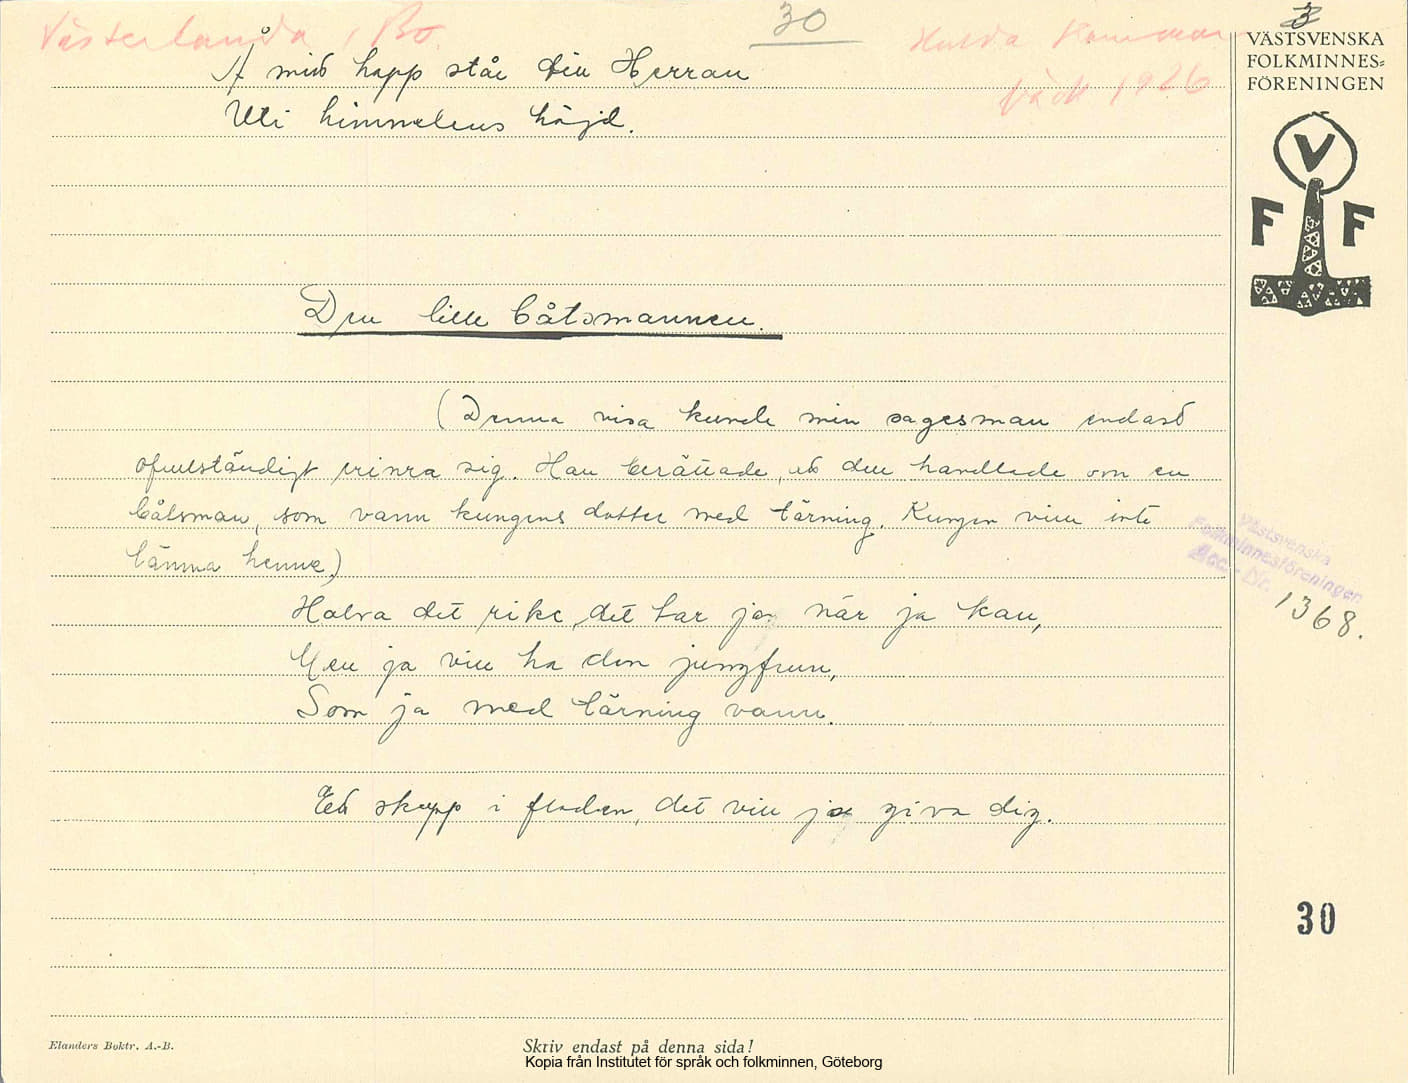 Västerlanda, Bo.
30
3
Hulda Hammar
bäck 1926
Å mitt hopp står till Herran
Uti himmelens höjd.
Den lille båtsmannen.
(Denna visa kunde min sagesman endast
ofullständigt erinra sig. Han berättade, att den handlade om en
båtsman, som vann kungens dotter med tärning. Kungen vill inte
lämna henne.)
Halva det rike, det tar jag när ja kan,
Men ja vill ha den jungfrun,
Som ja med tärning vann.
Ett skepp i floden, det vill jag giva dig.
VÄSTSVENSKA
FOLKMINNES=
FÖRENINGEN
V
F F
Västsvenska
Folkminnesföreningen
Acc.-Nr. 1368.
30
Elanders Boktr. A.-B.
Skriv endast på denna sida!
Kopia från Institutet för språk och folkminnen, Göteborg